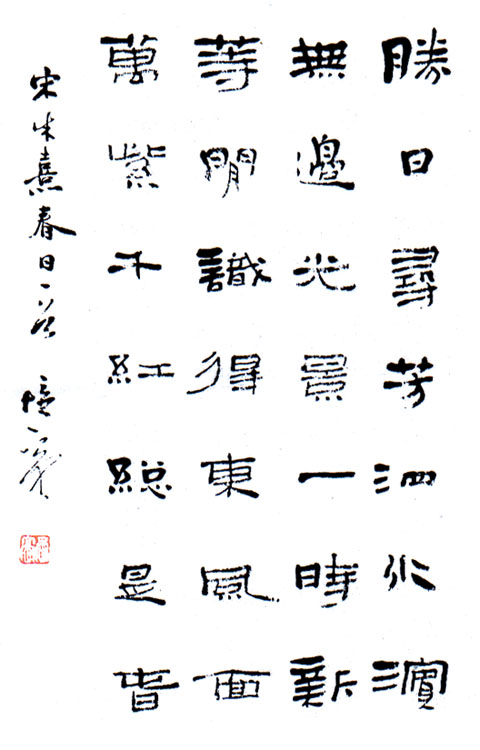 勝日尋芳泗水濱
無邊光景一時新
等閒識得東風面
萬紫千紅總是春
宋朱熹春日一首